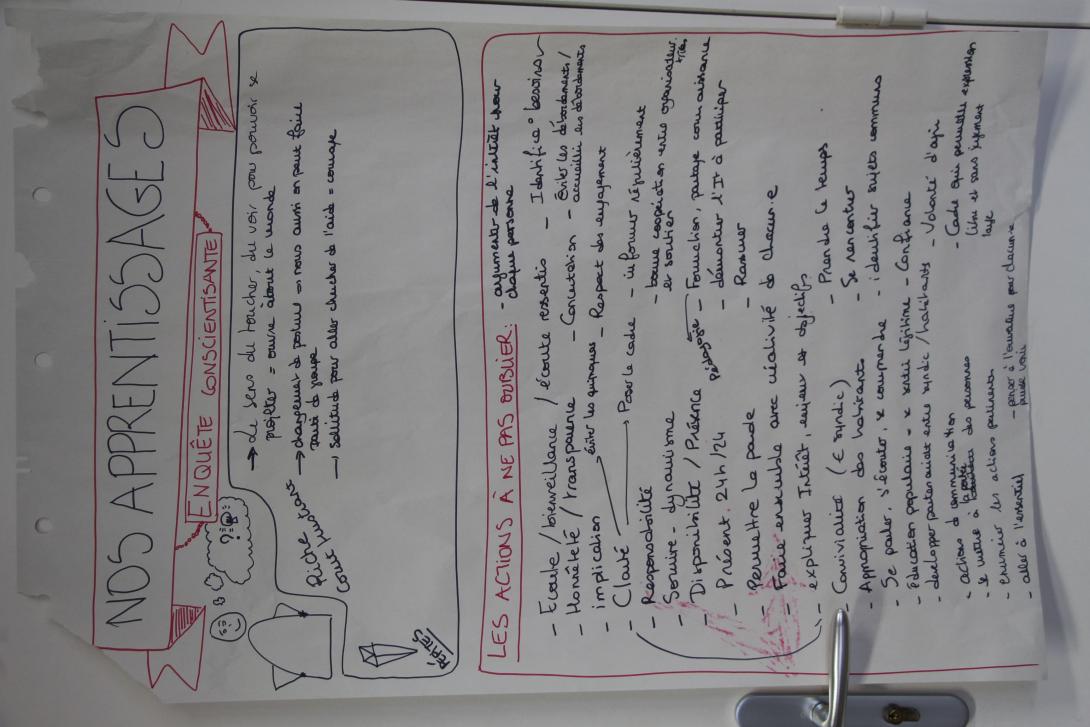 NOS APPRENTISSAGES
ENQUÊTE CONSCIENTISANTE
?!
Riche
→ Le sens du toucher, du voir pour pouvoir se
projeter = ouvre à tout le monde
→ changement de posture → nous aussi on peut faire
→ solitude pour aller chercher de l'aide = courage
PÉPITES
LES ACTIONS À NE PAS OUBLIER:
- argumenter de l'intérêt pour
chaque personne
- Ecoute / bienveillance / écoute ressentis
- Identifier besoins
- Honnêteté / transparence
- Concertation
- Éviter les débordements /
accueillir les débordements
- implication
→ éviter les
- Respect des engagement
- Clarté → Poser le cadre
- informer régulièrement
- Responsabilité
- bonne coopération entre organisateur.trices
et soutien
- Sourire - dynamisme
- Disponibilité / Présence
Pédagogie
- Formation, partage connaissance
- Présent 24h/24
- démontrer l'It à participer
- Permettre la parole
- Rassurer
- Faire ensemble avec créativité de chacun.e
- expliquer Intérêt, enjeux et objectifs
- Prendre le temps
- Convivialité (€ syndic)
- Se rencontrer
- Appropriation des habitants
- identifier sujets communs
- Se parler, s'écouter, se comprendre
- Éducation populaire = se sentir légitime
- Confiance
- développer partenariat entre syndic / habitants
- Volonté d'agir
- actions de communication
- Cadre qui permette expression
libre et sans jugement
- se mettre à la portée des personnes
- les actions pertinentes
- aller à l'essentiel
- penser à pour chacun.e